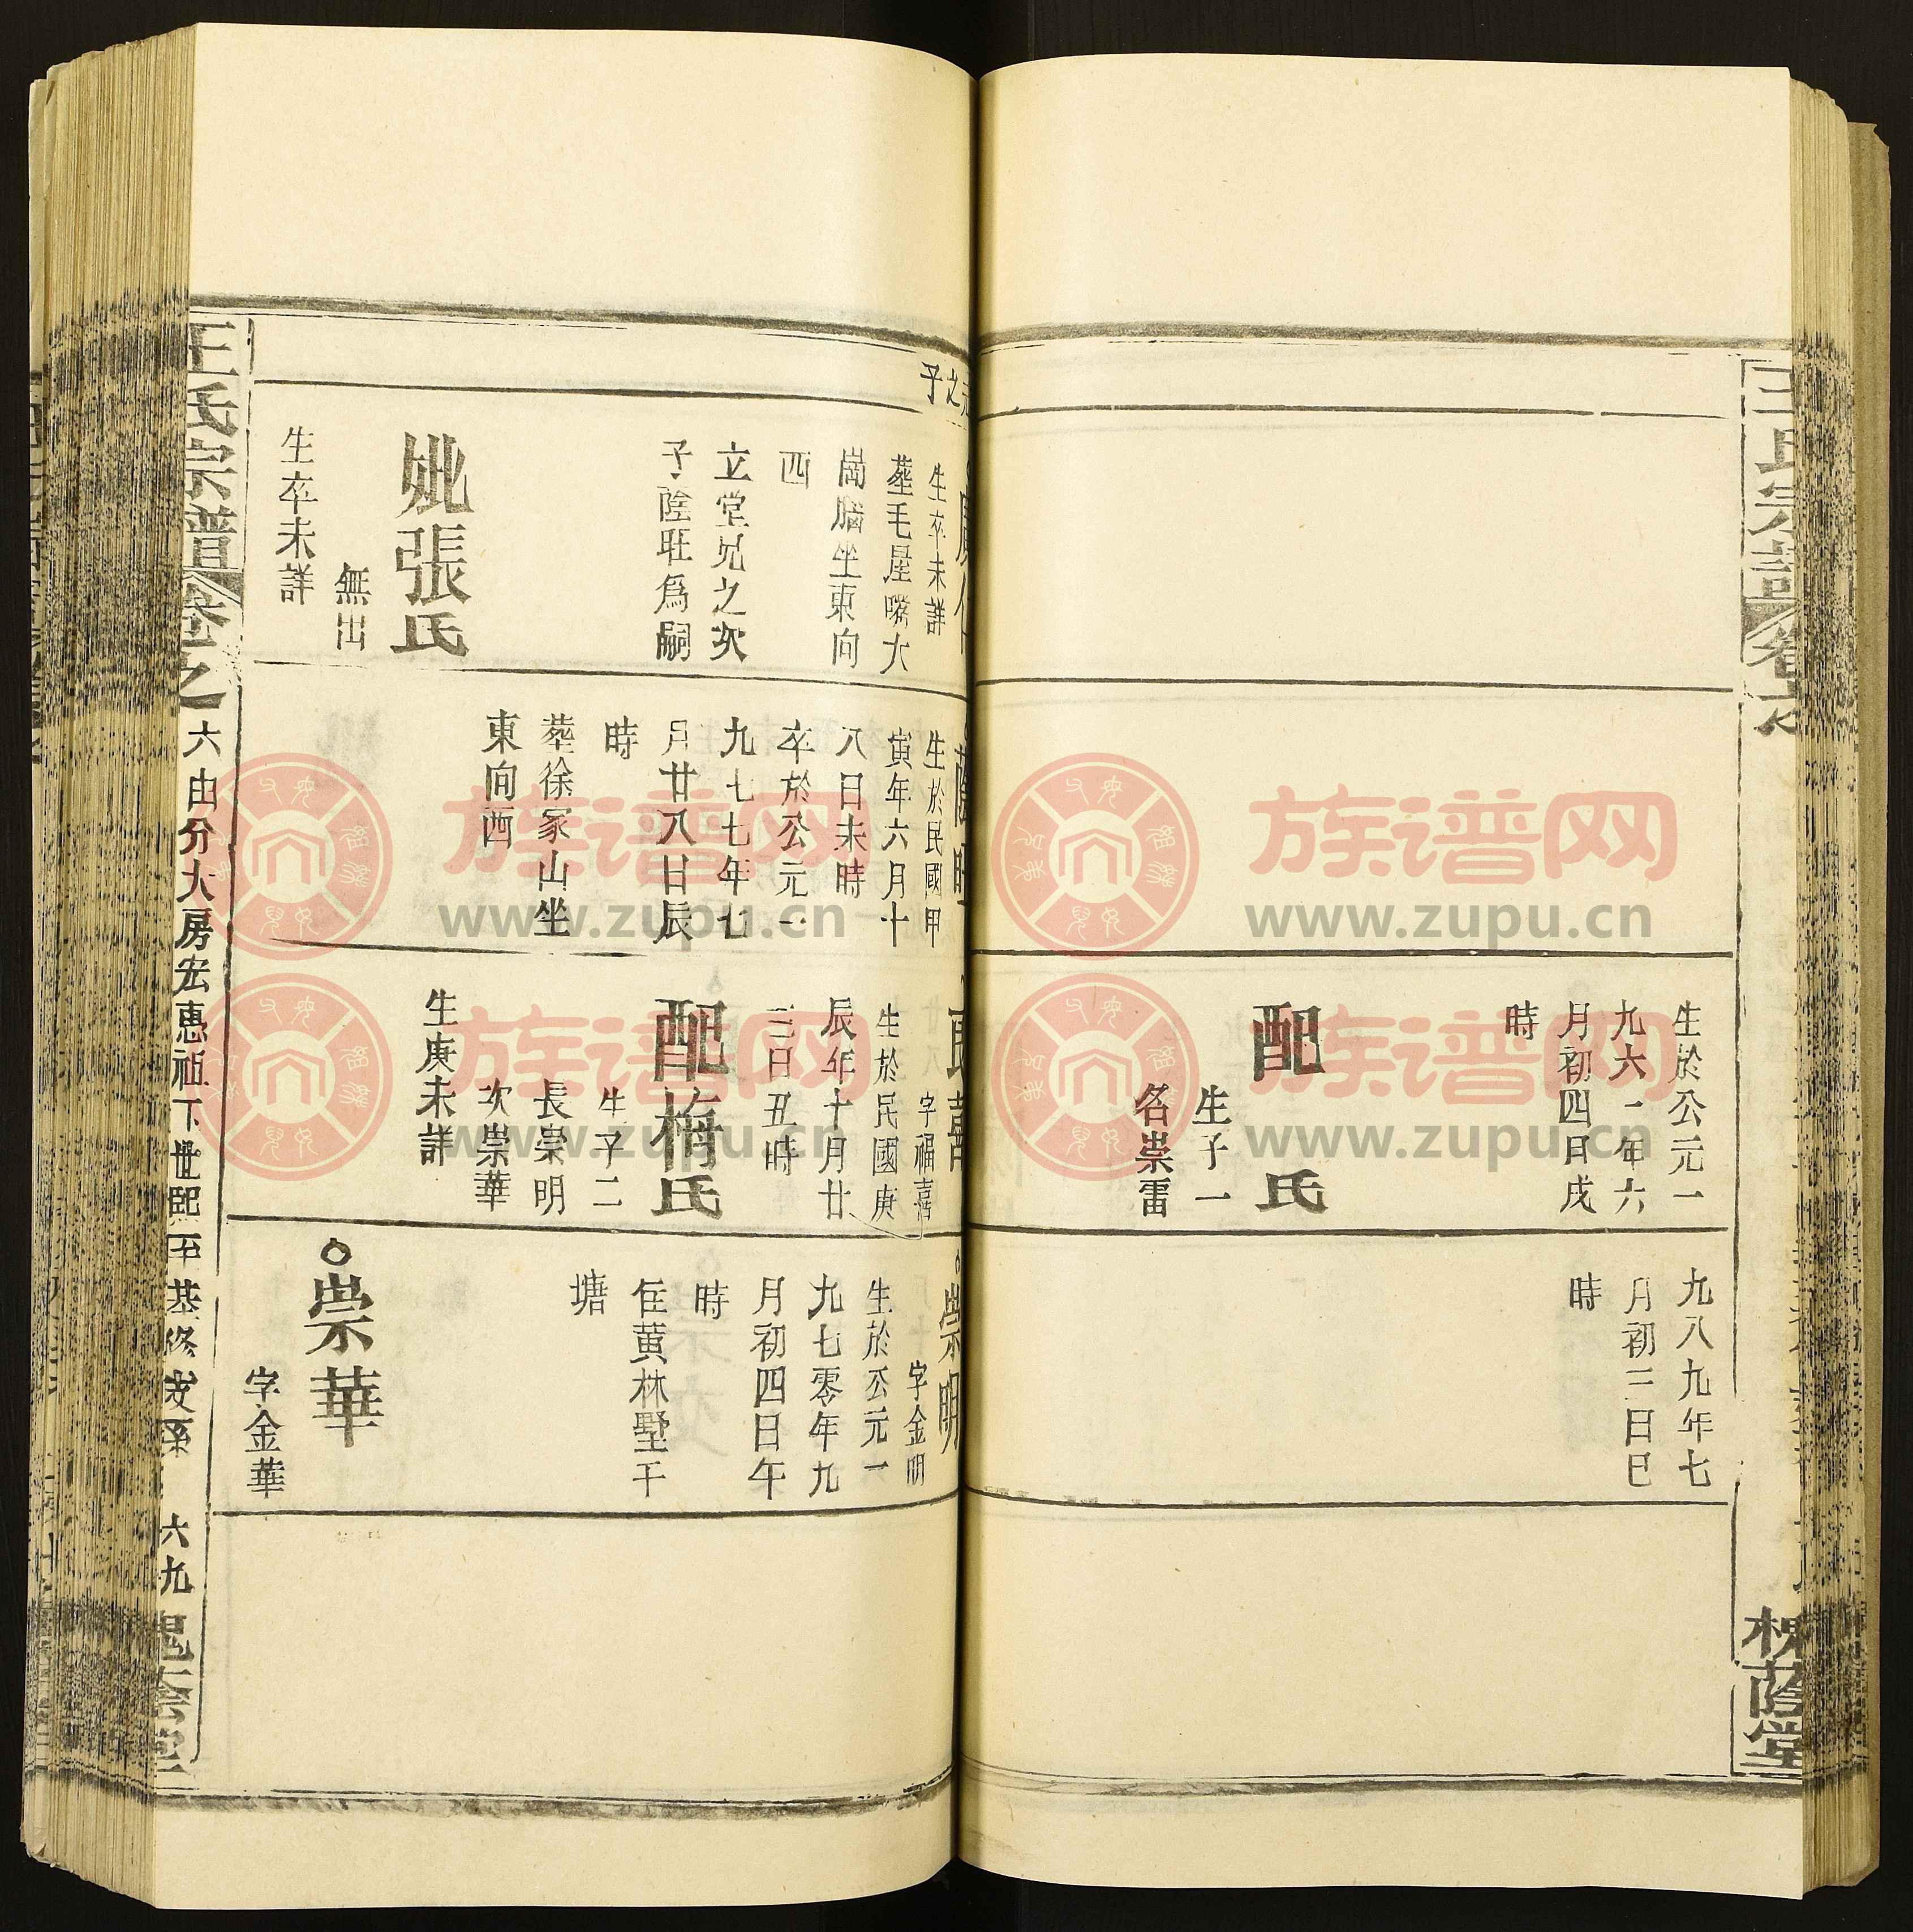 王氏宗譜
槐蔭堂
生於公元一
九六一年六
月初四日戌
時
配　氏
生子一
名崇雷
九八九年七
月初二日巳
時
元之子
生卒未詳
葬毛屋嘴大
崗腦坐東向
西
立堂兄之次
子蔭旺爲嗣
妣張氏
無出
生卒未詳
生於民國甲
寅年六月十
八日未時
卒於公元一
九七七年七
月廿八日辰
時
葬徐家山坐
東向西
字福喜
生於民國庚
辰年十月廿
三日丑時
配梅氏
生子二
長崇明
次崇華
生庚未詳
崇明
字金明
生於公元一
九七零年九
月初四日午
時
住黄林墅干
塘
崇華
字金華
王氏宗譜
卷之
六由分大房宏惠祖下世熙
六九
族谱网
www.zupu.cn
族谱网
www.zupu.cn
族谱网
www.zupu.cn
族谱网
www.zupu.cn